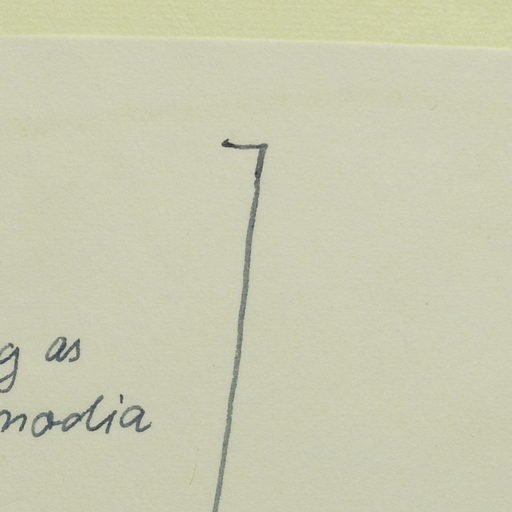 g as
modia